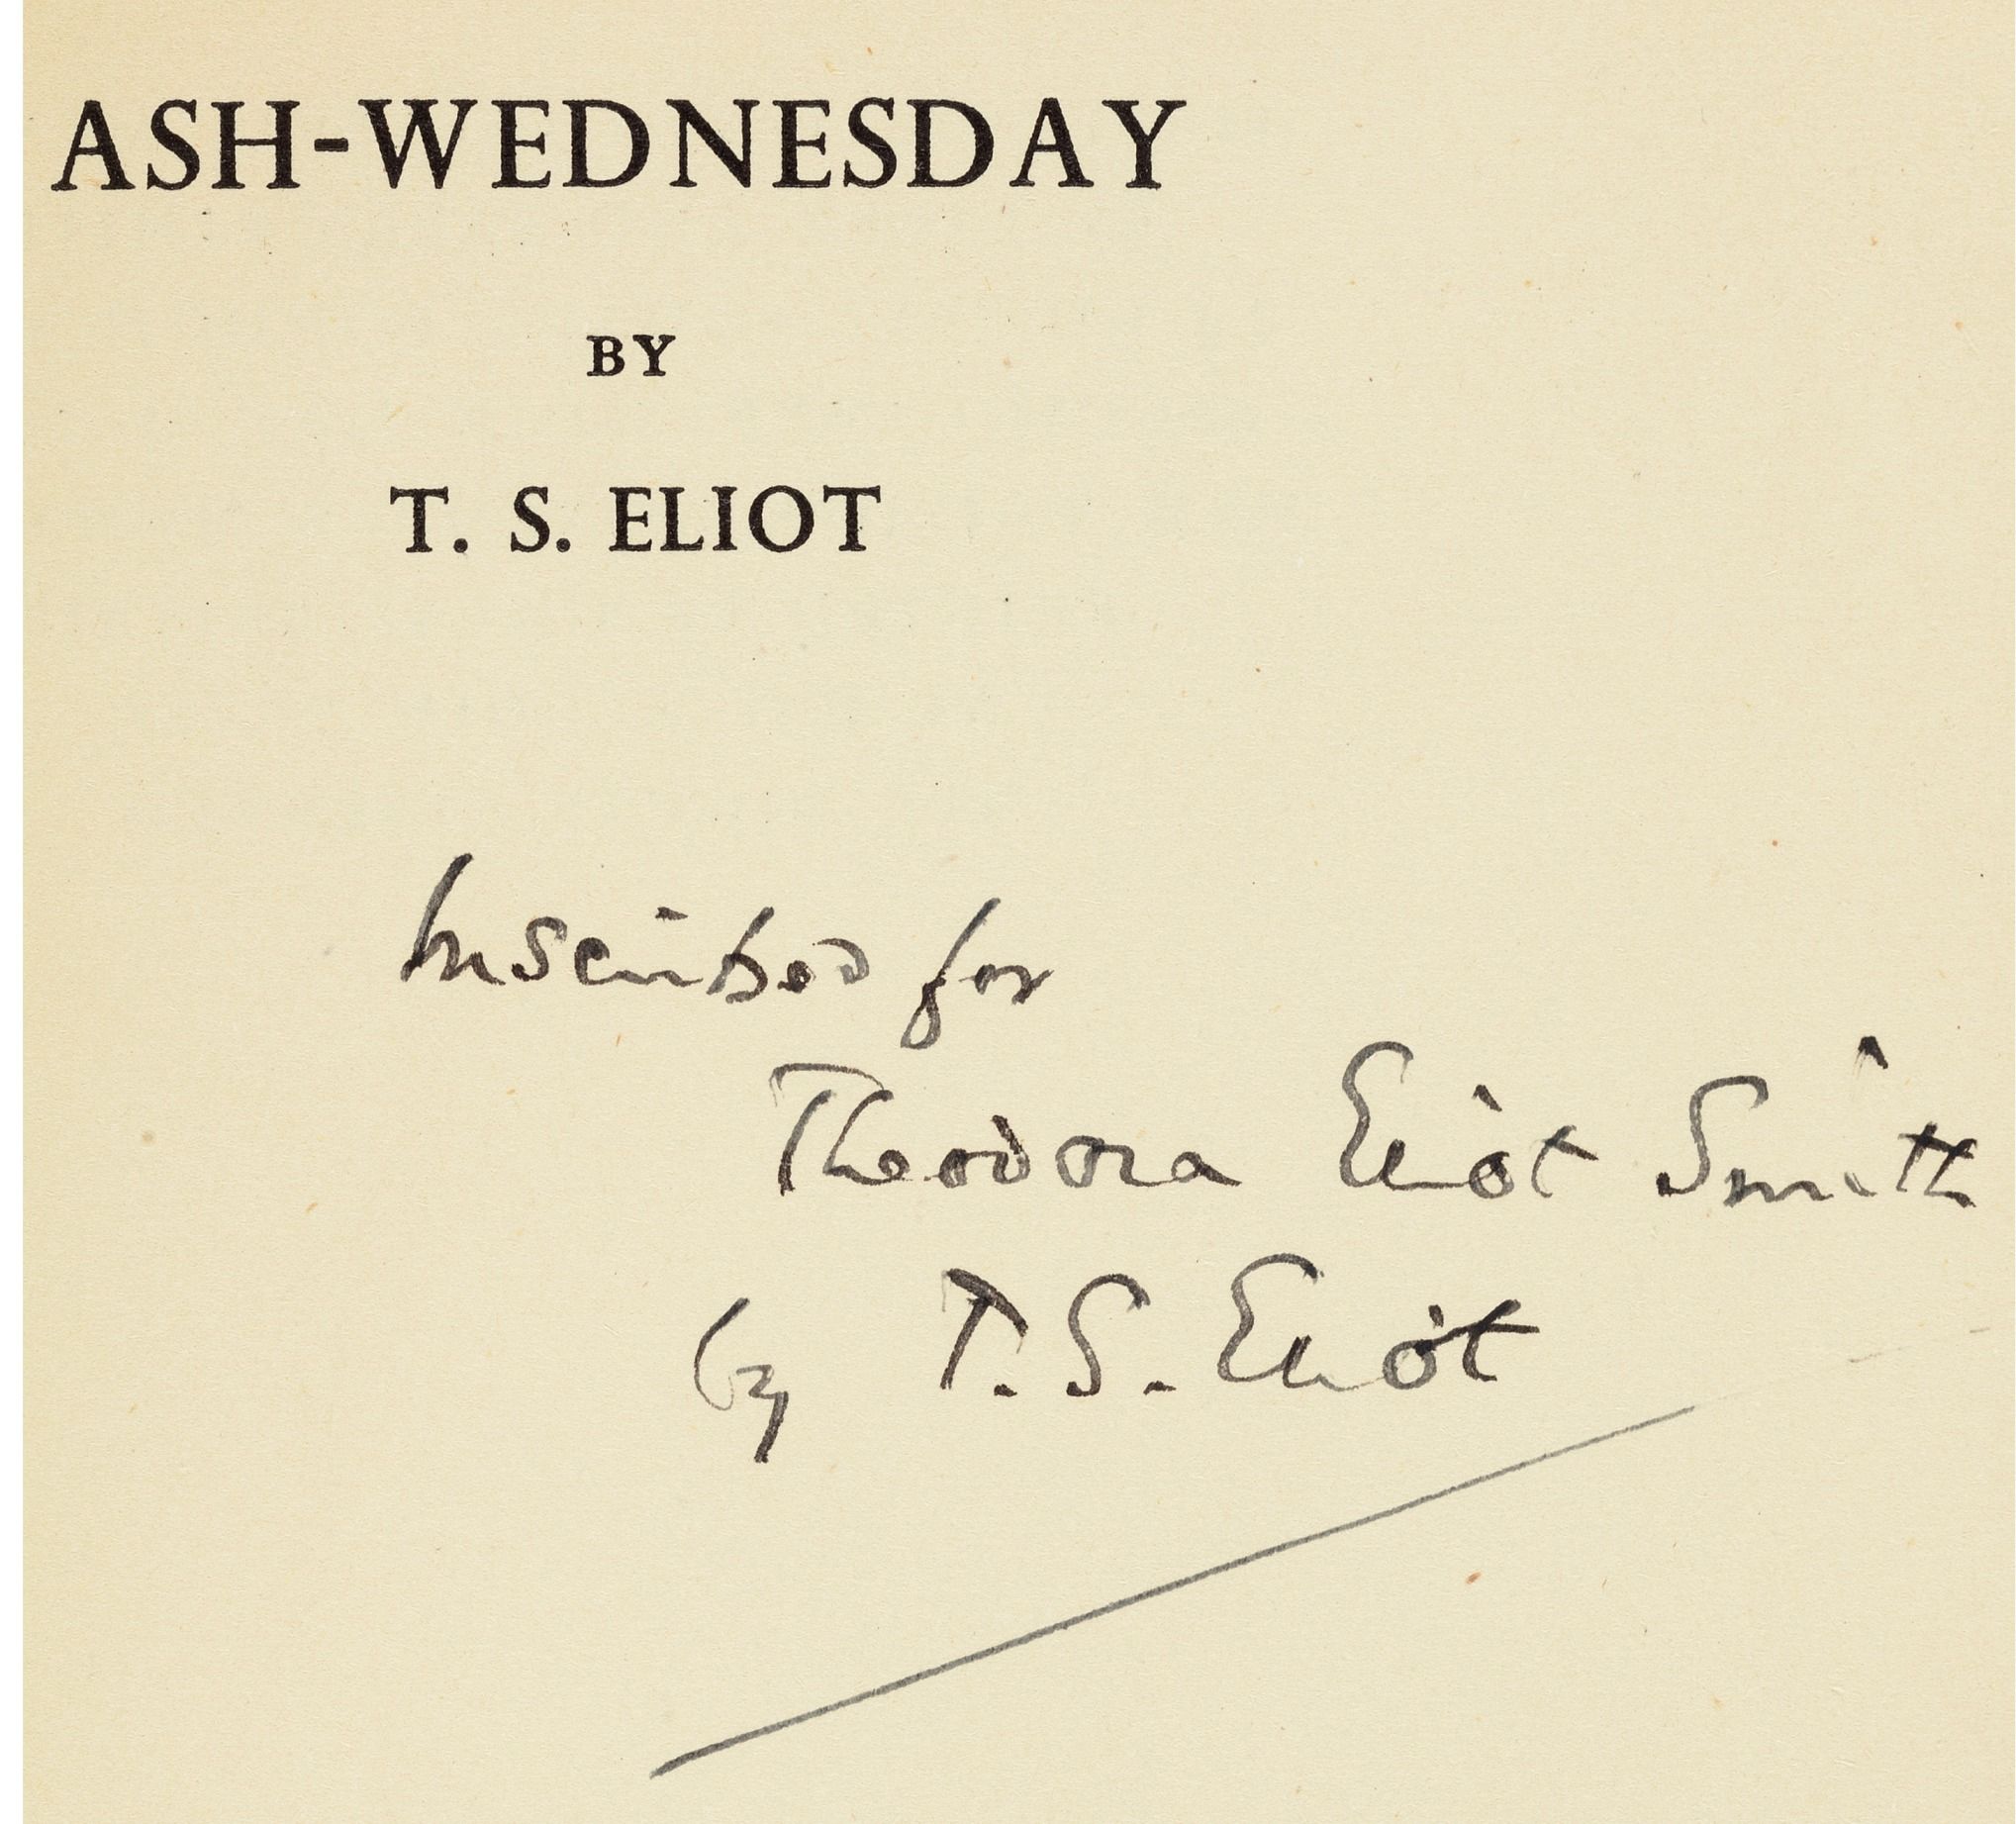 ASH-WEDNESDAY
BY
T. S. ELIOT
Inscribed for
Theodora Eliot Smith
by T. S. Eliot